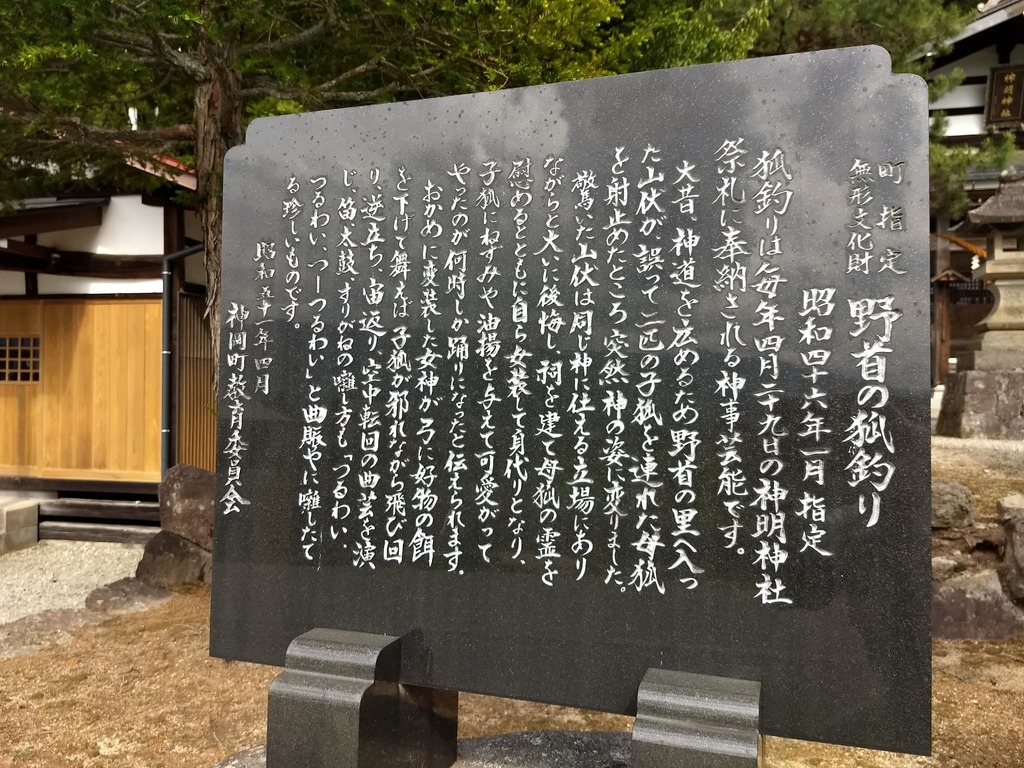 町指定
無形文化財
野首の狐釣り
昭和四十六年一月 指定
狐釣りは毎年四月二十九日の神明神社
祭礼に奉納される神事芸能です。
大昔、神道を広めるため野首の里へ入っ
た山伏が、誤って二匹の子狐を連れた母狐
を射止めたところ突然神の姿に変りました。
驚いた山伏は同じ神に仕える立場にあり
ながらと大いに後悔し祠を建て母狐の霊を
慰めるとともに自ら女装して身代りとなり、
子狐にねずみや油揚を与えて可愛がって
やったのが何時しか踊りになったと伝えられます。
おかめに変装した女神が弓に好物の餌
を下げて舞えば子狐が邪れながら飛び回
り、逆立ち、宙返り、空中転回の曲芸を演
じ、笛、太鼓、すりがねの囃し方も「つるわい、
つるわい、つーつるわい」と曲賑やに囃したて
る珍しいものです。
昭和五十一年四月
神岡町教育委員会
神明神社